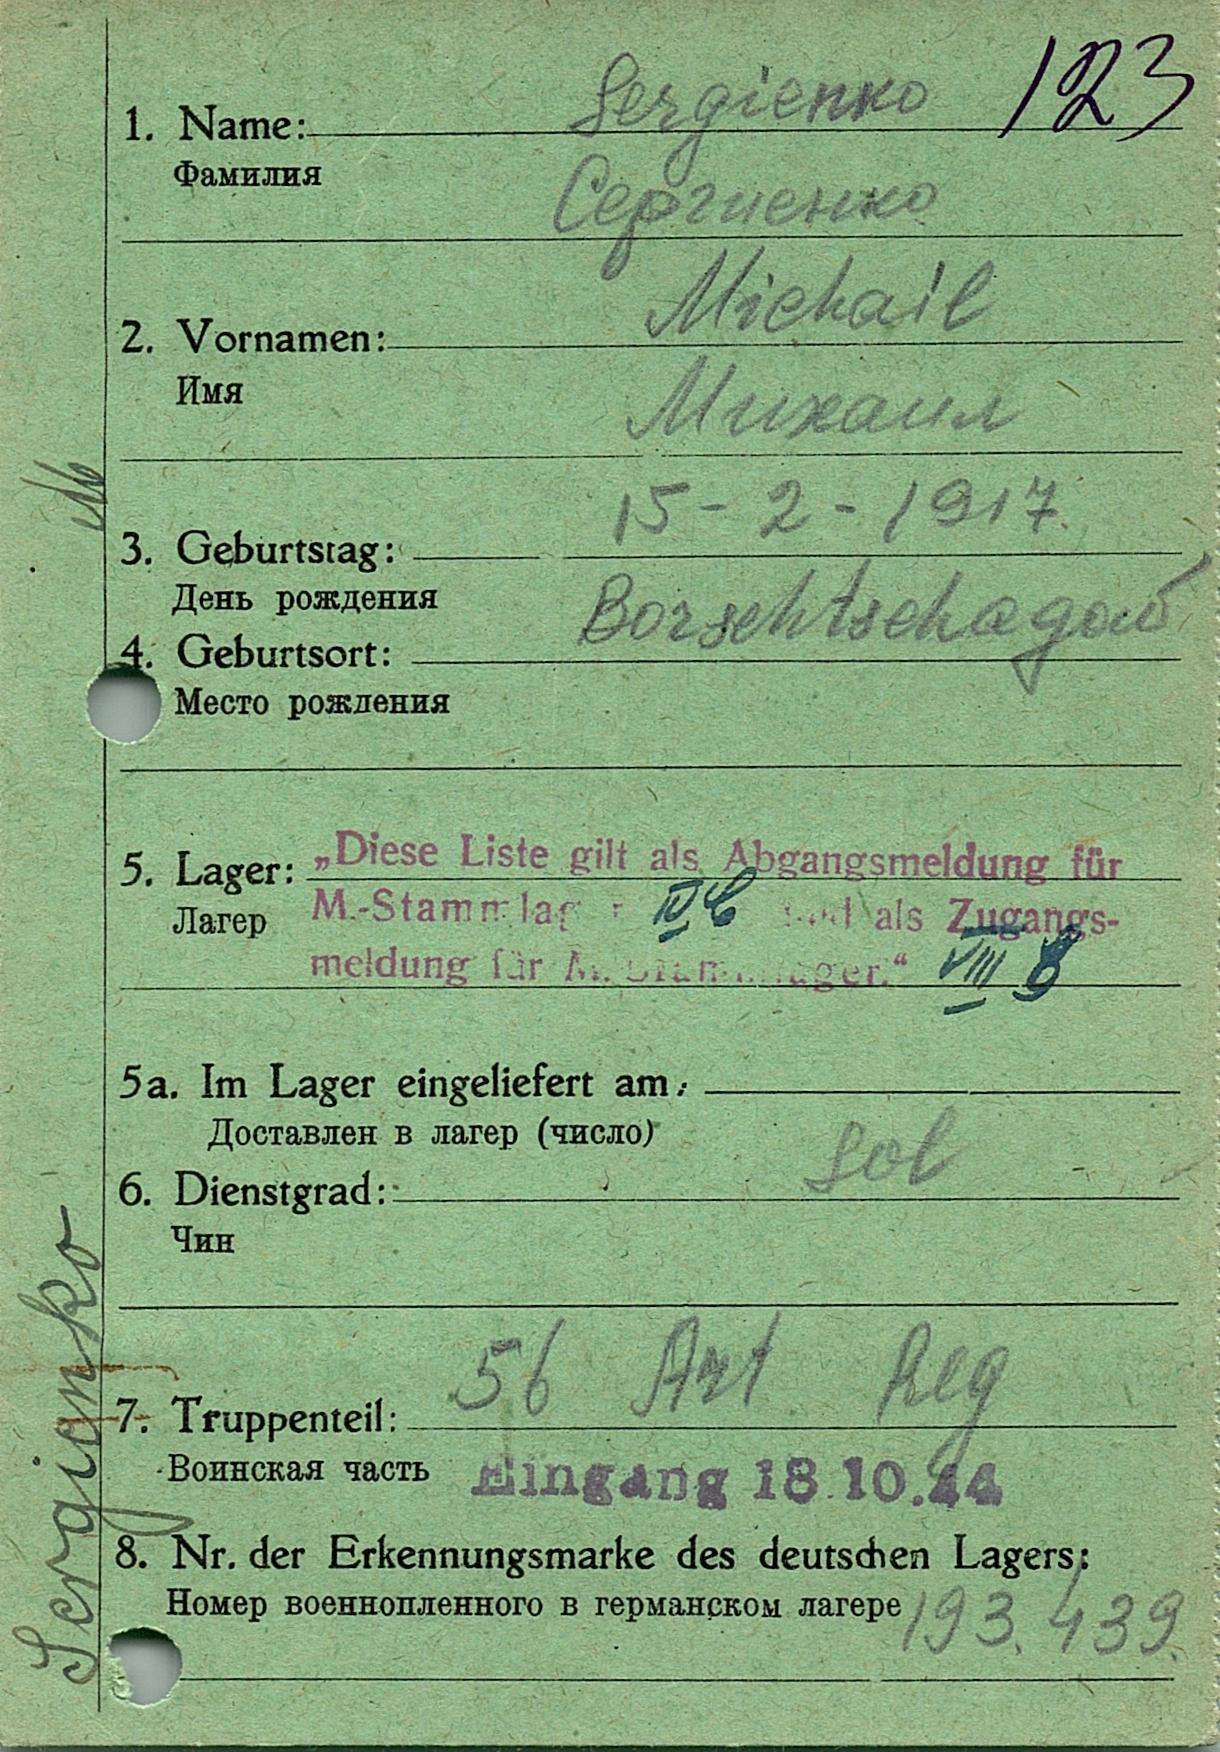 123
1. Name: Sergienko
Фамилия Сергиенко
2. Vornamen: Michail
Имя Михаил
3. Geburtstag: 15-2-1917.
День рождения
4. Geburtsort: Borschtschagow
Место рождения
5. Lager: „Diese Liste gilt als Abgangsmeldung für
Лагер M.-Stammlager IV B und als Zugangs-
meldung für M. Stammlager.“ VIII B
5a. Im Lager eingeliefert am:
Доставлен в лагер (число)
6. Dienstgrad: Sol
Чин
7. Truppenteil: 56 Art Reg
Воинская часть Eingang 18.10.44
8. Nr. der Erkennungsmarke des deutschen Lagers:
Номер военнопленного в германском лагере 193.439.
Sergienko